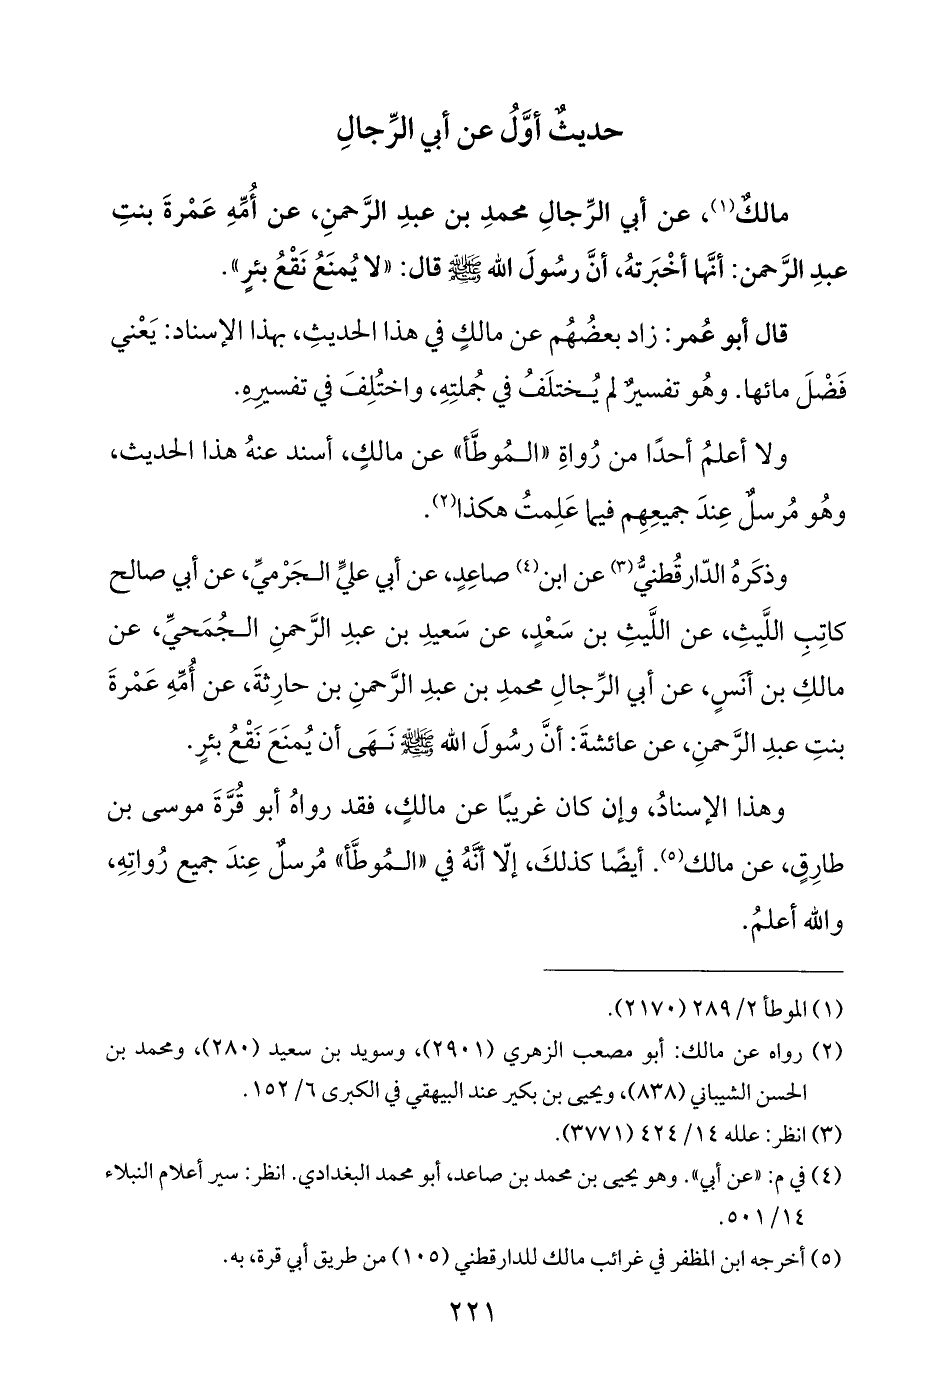 حديثٌ أوَّلُ عن أبي الرِّجالِ
مالكٌ(١)، عن أبي الرِّجالِ محمدِ بن عبدِ الرَّحمنِ، عن أُمِّهِ عَمْرةَ بنتِ
عبدِ الرَّحمن: أنَّها أخْبَرتهُ، أنَّ رسُولَ الله ﷺ قال: «لا يُمنَعُ نَقْعُ بئرٍ».
قال أبو عُمر: زاد بعضُهُم عن مالكٍ في هذا الحديثِ، بهذا الإسناد: يَعْني
فَضْلَ مائها. وهُو تفسيرٌ لم يُـختلَفُ في جُملتِهِ، واختُلِفَ في تفسيرِهِ.
ولا أعلمُ أحدًا من رُواةِ «الـمُوطَّأ» عن مالكٍ، أسند عنهُ هذا الحديث،
وهُو مُرسلٌ عِندَ جميعِهِم فيما عَلِمتُ هكذا(٢).
وذكَرهُ الدّارقُطنيُّ(٣) عن ابن(٤) صاعِدٍ، عن أبي عليٍّ الـجَرْميِّ، عن أبي صالح
كاتِبِ اللَّيثِ، عن اللَّيثِ بن سَعْدٍ، عن سَعيدِ بن عبدِ الرَّحمنِ الـجُمَحيِّ، عن
مالكِ بن أنَسٍ، عن أبي الرِّجالِ محمدِ بن عبدِ الرَّحمنِ بن حارثةَ، عن أُمِّهِ عَمْرةَ
بنتِ عبدِ الرَّحمنِ، عن عائشةَ: أنَّ رسُولَ الله ﷺ نَـهَى أن يُمنَعَ نَقْعُ بئرٍ.
وهذا الإسنادُ، وإن كان غريبًا عن مالكٍ، فقد رواهُ أبو قُرَّةَ موسى بن
طارِقٍ، عن مالك(٥). أيضًا كذلكَ، إلّا أنَّهُ في «الـمُوطَّأ» مُرسلٌ عِندَ جميع رُواتِهِ،
والله أعلمُ.
(١) الموطأ ٢/ ٢٨٩ (٢١٧٠).
(٢) رواه عن مالك: أبو مصعب الزهري (٢٩٠١)، وسويد بن سعيد (٢٨٠)، ومحمد بن
الحسن الشيباني (٨٣٨)، ويحيى بن بكير عند البيهقي في الكبرى ٦/ ١٥٢.
(٣) انظر: علله ١٤/ ٤٢٤ (٣٧٧١).
(٤) في م: «عن أبي». وهو يحيى بن محمد بن صاعد، أبو محمد البغدادي. انظر: سير أعلام النبلاء
١٤/ ٥٠١.
(٥) أخرجه ابن المظفر في غرائب مالك للدارقطني (١٠٥) من طريق أبي قرة، به.
٢٢١